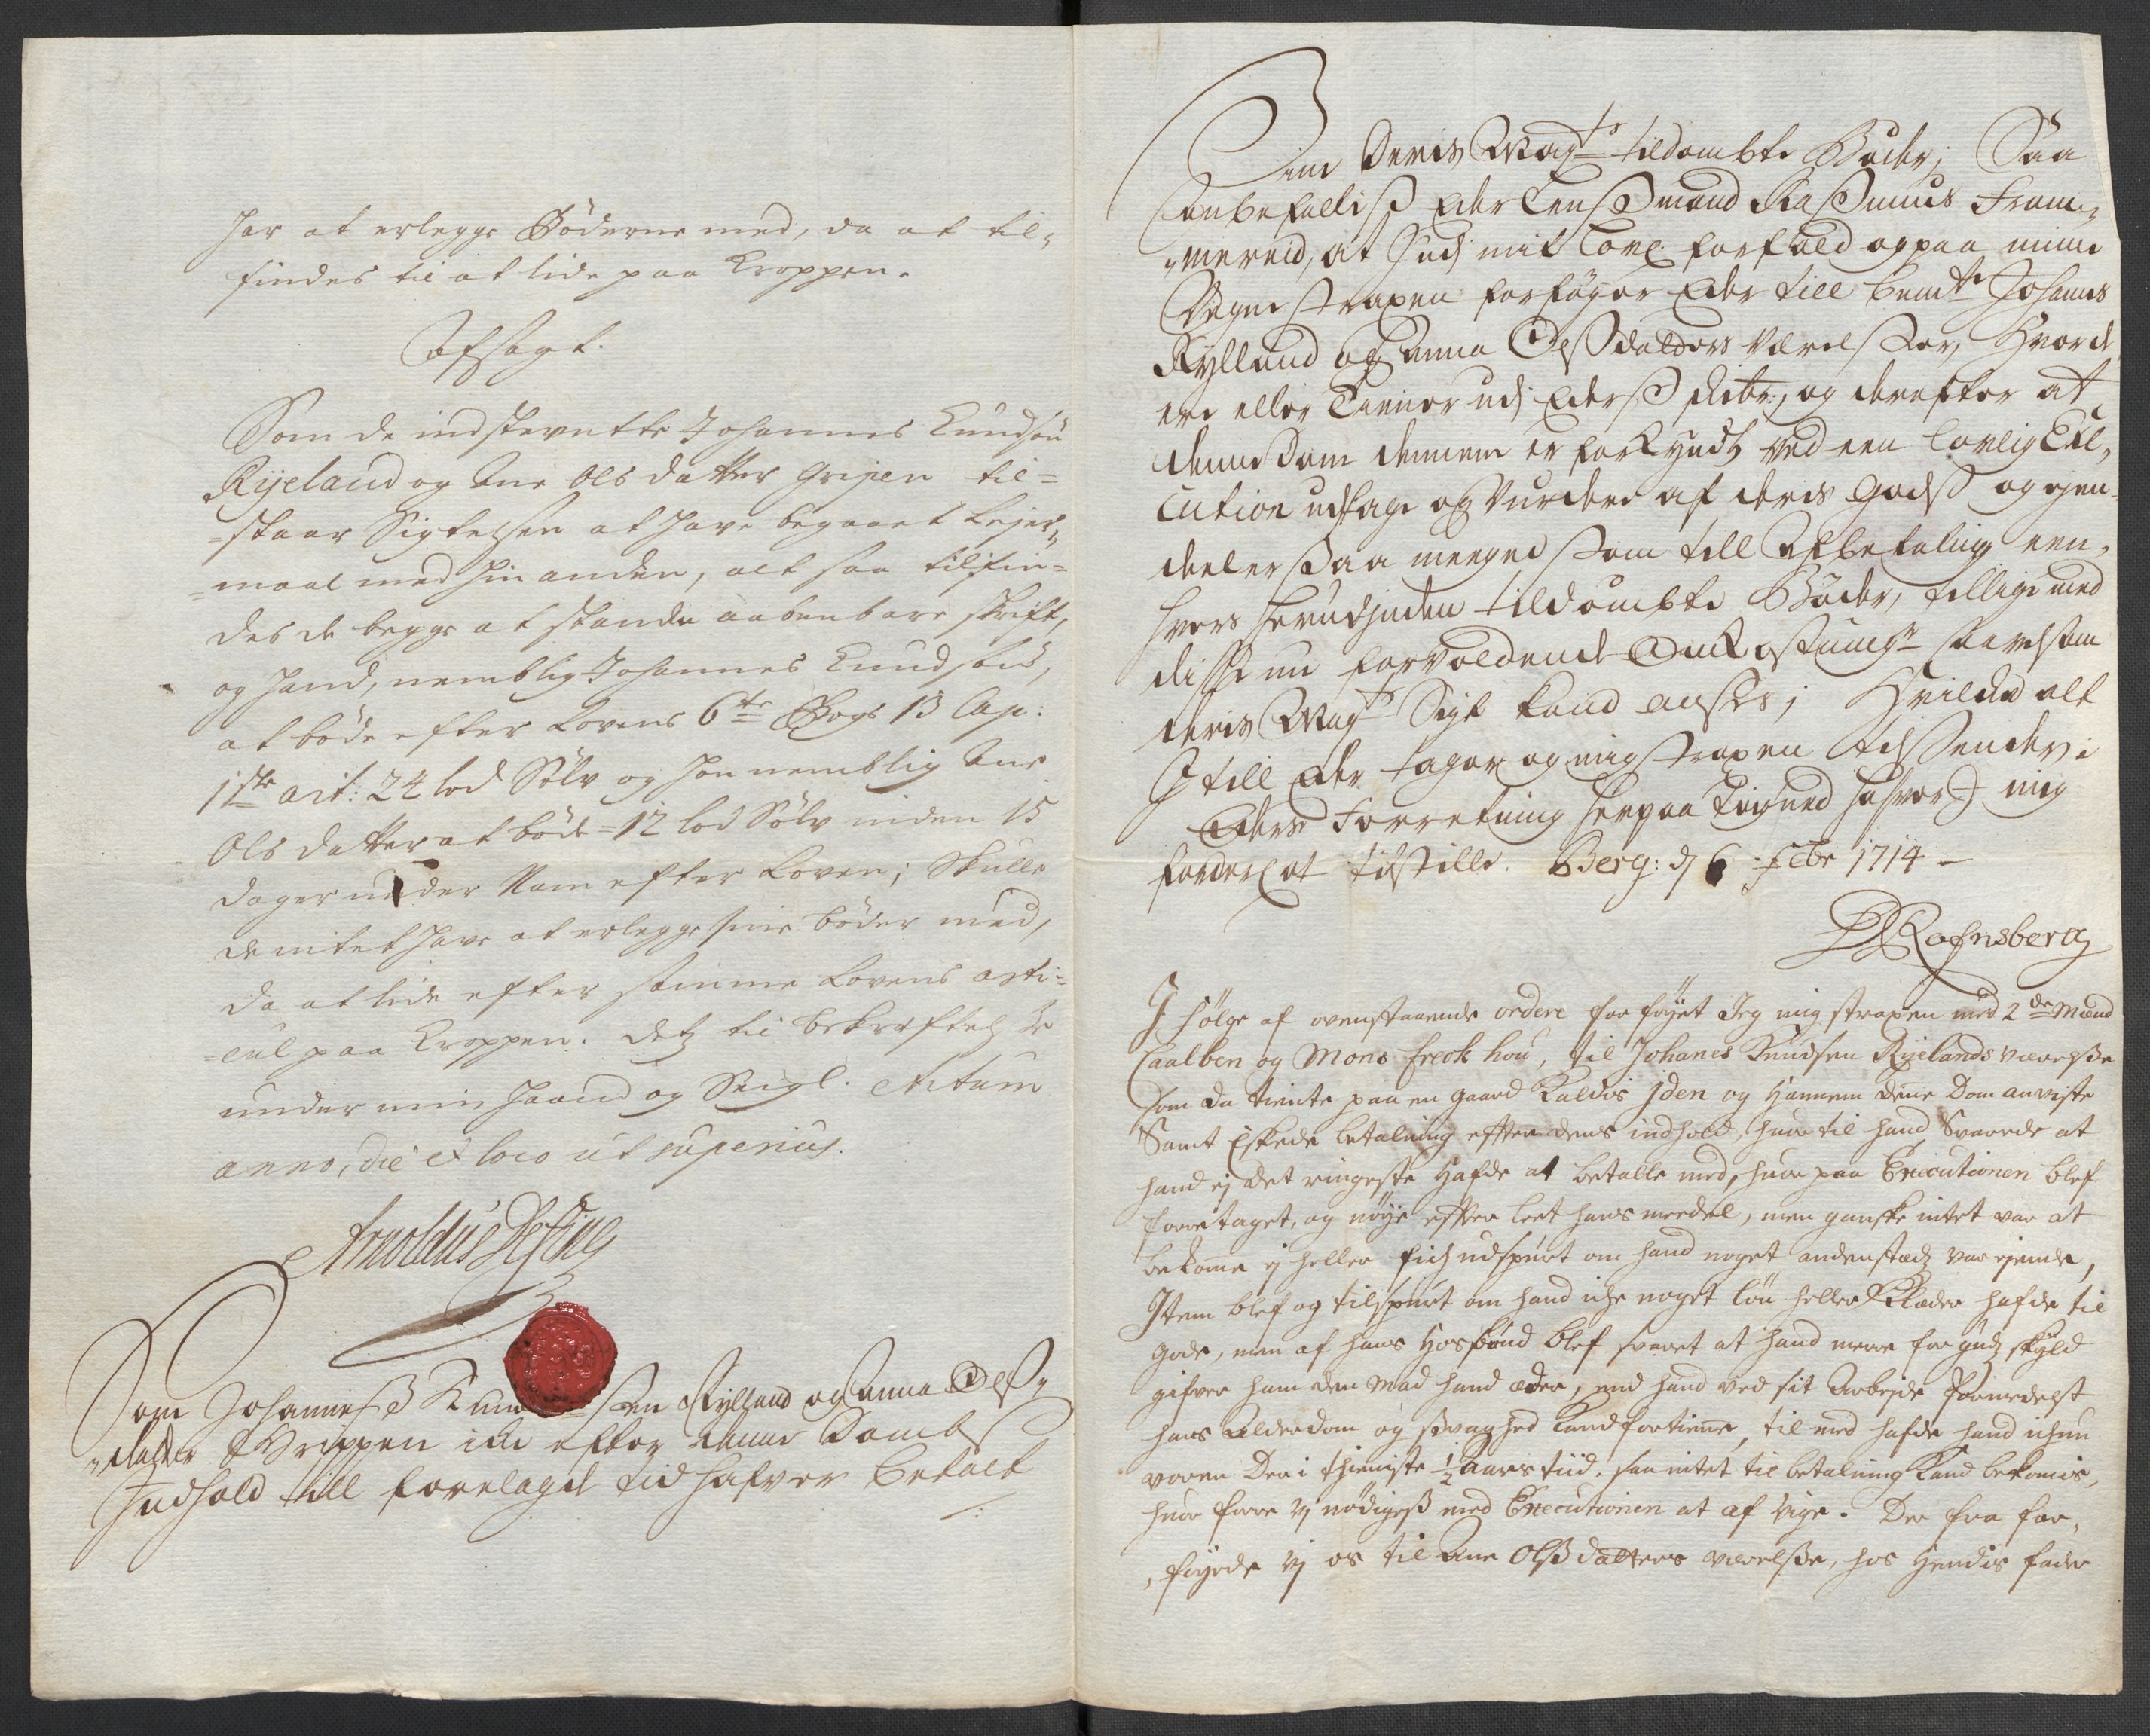 har at erlegge Bøderne med, da at til-
findes til at lide paa Kroppen.
Afsagt.
Som de indstevnte Johannes Knudsøn
Rijeland og Ane Olsdatter Gripen til-
staar Sigtelsen at have begaaet Lejer-
maal med hin anden, alt saa tilfin-
des de begge at stande aabenbare skrift,
og hand, nemblig Johannes Knudsøn,
at bøde efter Lovens 6te Bogs 13 Cap:
1ste art: 24 lod Sølv og hun nemblig Ane
Olsdatter at bøde 12 lod Sølv inden 15
dager under Nam efter Loven; Skulle
de intet have at erlegge sine bøder med,
da at lide efter samme Lovens arti-
cul paa Kroppen. Dets til bekræftelse
under min Haand og Seigl. Actum
anno, die et loco ut superius.
Arnoldus
Som Johannes Knudssen Rylland og Anna Ols-
datter Grippen iche efter denne Dombs
Indhold till forelagde tid hafver betalt
Sine Deris Mayts tildømbte Bøder; Saa
anbefallis Eder Lensmand Rasmus Fram-
mereid, at I udj mit lovl. forfald og paa mine
Vegne straxen forføyer Eder till bemte Johannes
Rylland og Anna Olsdatters værelser, hvor de
ere eller tiener udj Eders District, og derefter at
denne Dom dennem er forkyndt ved een lovlig Exe-
cution udtage og vurdere af deris Gods og ejen-
deeler saa meeget som till afbetaling een-
hvers herudjnden tildømbte Bøder, tillige med
disse nu forvoldende Omkostninger saavelsom
deris Mayts Sigt kand ansees; Hvilcket alt
I till Eder tager og mig straxen tilsender;
Eders Forretning herpaa tegned hafver I mig
forderl. at tilstille. Berg: d 6 Febr 1714 –
Rafnsberg
I følge af ovenstaaende ordere forføyet Jeg mig straxen med 2de Mænd
Caalben og Mons Freck hou, til Johanes Knudsen Rijelands værelse
som da tiente paa en gaard Kaldis Iden og hannem denne Dom anviste
Samt Eskede betalning efter dens indhold, huor til hand Svarede at
hand ej det ringeste hafde at betalle med, huor paa Executionen blef
foretaget, og nøye efter leet hans meedel, men ganske intet var at
bekomme ej heller fich udspurt om hand noget andenstædz var ejende,
Item blef og tilspurt om hand iche noget løn heller Klæder hafde til
gode, men af hans Hosbond blef svaret at hand mere for gudz skyld
gifver ham den mad hand æder, end hand ved sit Arbejde formedelst
hans Alderdom og svaghed kand fortienne, til med hafde hand ichun
voren Der i thieniste ½ aars tiid, saa intet til betalning kand bekomis,
huor fore Vj nødiges med Executionen at af vige. Der fra for-
føyede Vj os til Ane Olsdatters værelse, hos hendis fader